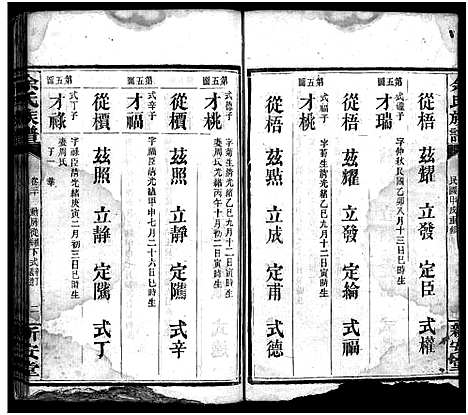 余氏族譜
民國甲戌重鐫
新安堂
從梧 玆耀 立發 定臣 式權
第五圖
才瑞
式權子
字仲秋民國乙卯八月十三日辰時生
從梧 玆耀 立發 定綸 式福
第五圖
才桃
字菊生清光緒乙巳年九月十二日寅時生
從梧 玆點 立成 定甫 式德
第五圖
才桃
式德子
字菊生清光緒乙巳年九月十二日寅時生
妻周氏光緒丙午十月初二日寅時生
從櫝 玆照 立靜 定隲 式辛
第五圖
才福
式辛子
字福臣清光緒甲申七月二十六日時生
從櫝 玆照 立靜 定隲 式丁
第五圖
才祿
式丁子
字祿臣清光緒庚寅二月初三日巳時生
妻周氏
余氏族譜
二
新安堂